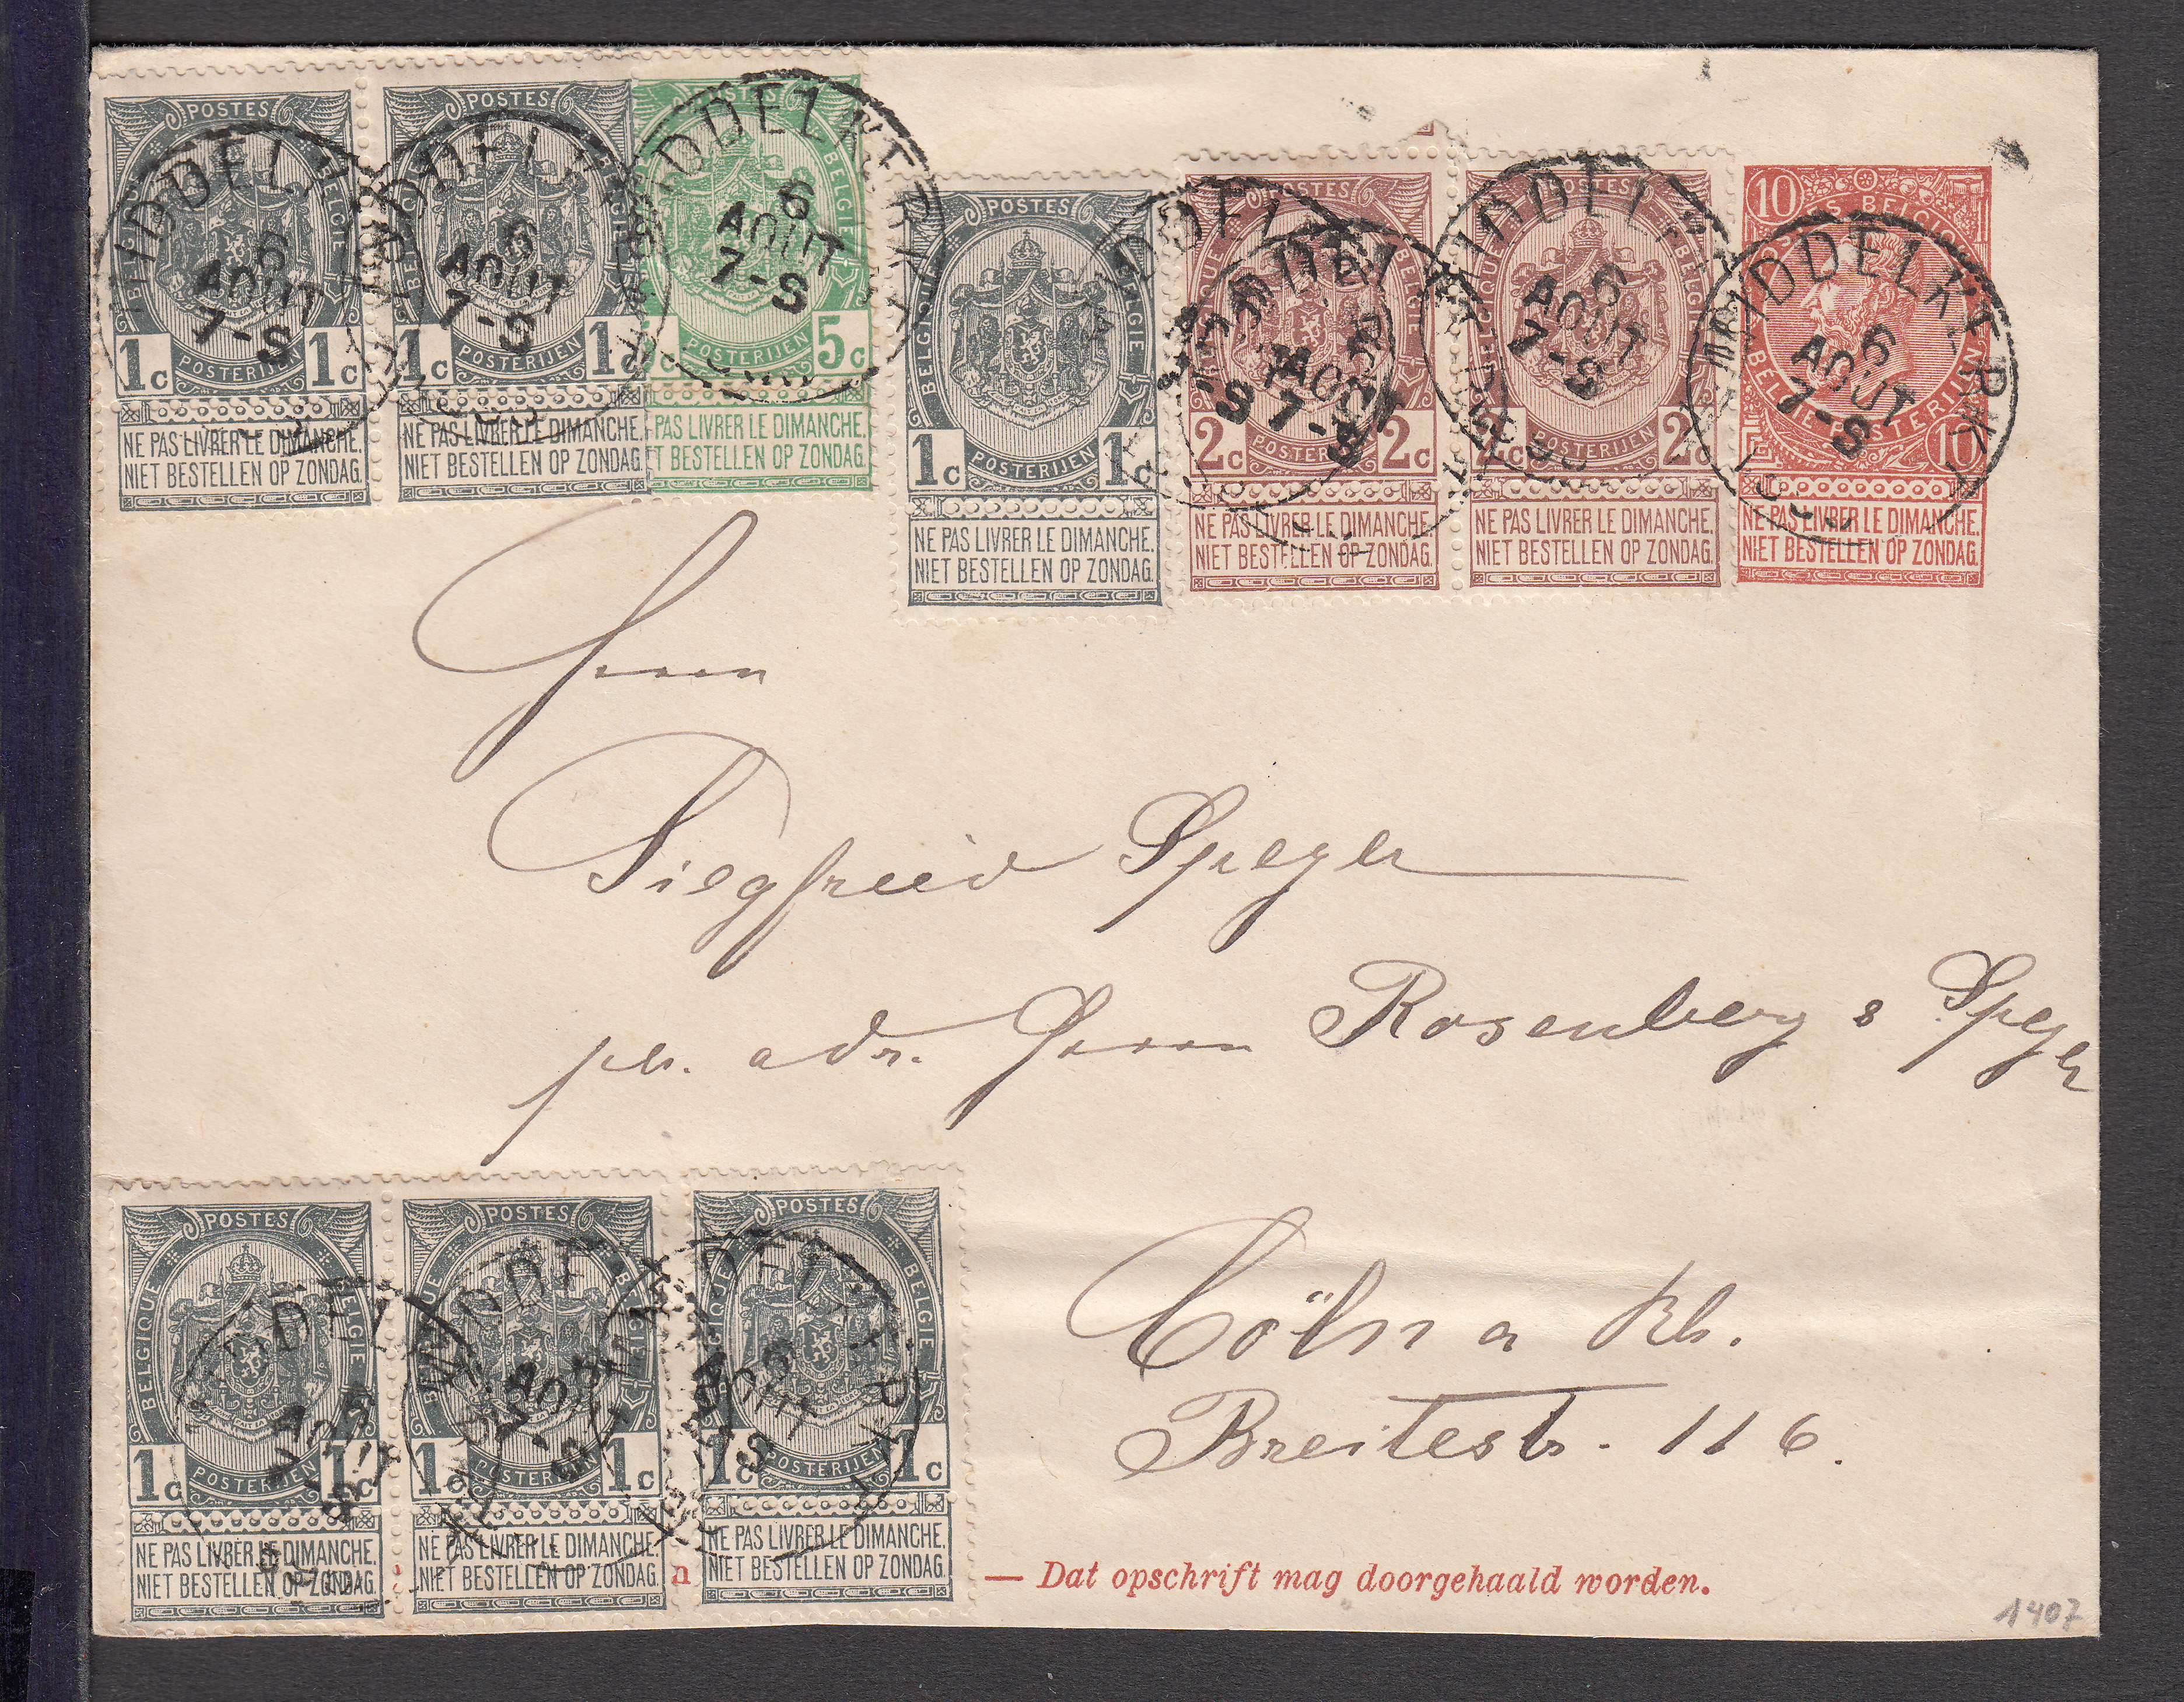 POSTES
BELGIQUE BELGIE
1c POSTERIJEN 1c
NE PAS LIVRER LE DIMANCHE.
NIET BESTELLEN OP ZONDAG.
MIDDELK
6
AOUT
7-S
POSTES
BELGIQUE BELGIE
1c POSTERIJEN 1c
NE PAS LIVRER LE DIMANCHE.
NIET BESTELLEN OP ZONDAG.
MIDDELK
6
AOUT
7-S
POSTES
BELGIE
5c POSTERIJEN 5c
PAS LIVRER LE DIMANCHE.
T BESTELLEN OP ZONDAG.
MIDDELKERKE
6
AOUT
7-S
POSTES
BELGIQUE BELGIE
1c POSTERIJEN 1c
NE PAS LIVRER LE DIMANCHE.
NIET BESTELLEN OP ZONDAG.
POSTES
BELGIQUE BELGIE
2c POSTERIJEN 2c
NE PAS LIVRER LE DIMANCHE.
NIET BESTELLEN OP ZONDAG.
MIDDEL
AOUT
7-S
POSTES
BELGIQUE BELGIE
2c POSTERIJEN 2c
NE PAS LIVRER LE DIMANCHE.
NIET BESTELLEN OP ZONDAG.
MIDDELK
6
AOUT
7-S
10
POSTES BELGIQUE
BELGIE POSTERIJEN
10
NE PAS LIVRER LE DIMANCHE.
NIET BESTELLEN OP ZONDAG.
MIDDELKERKE
6
AOUT
7-S
Herrn
Siegfried Speyer
pr. adr. Herrn Rosenberg & Speyer
Cöln a Rh.
Breitestr. 116.
POSTES
BELGIQUE BELGIE
1c POSTERIJEN 1c
NE PAS LIVRER LE DIMANCHE.
NIET BESTELLEN OP ZONDAG.
POSTES
BELGIQUE BELGIE
1c POSTERIJEN 1c
NE PAS LIVRER LE DIMANCHE.
NIET BESTELLEN OP ZONDAG.
POSTES
BELGIQUE BELGIE
1c POSTERIJEN 1c
NE PAS LIVRER LE DIMANCHE.
NIET BESTELLEN OP ZONDAG.
n — Dat opschrift mag doorgehaald worden.
1407